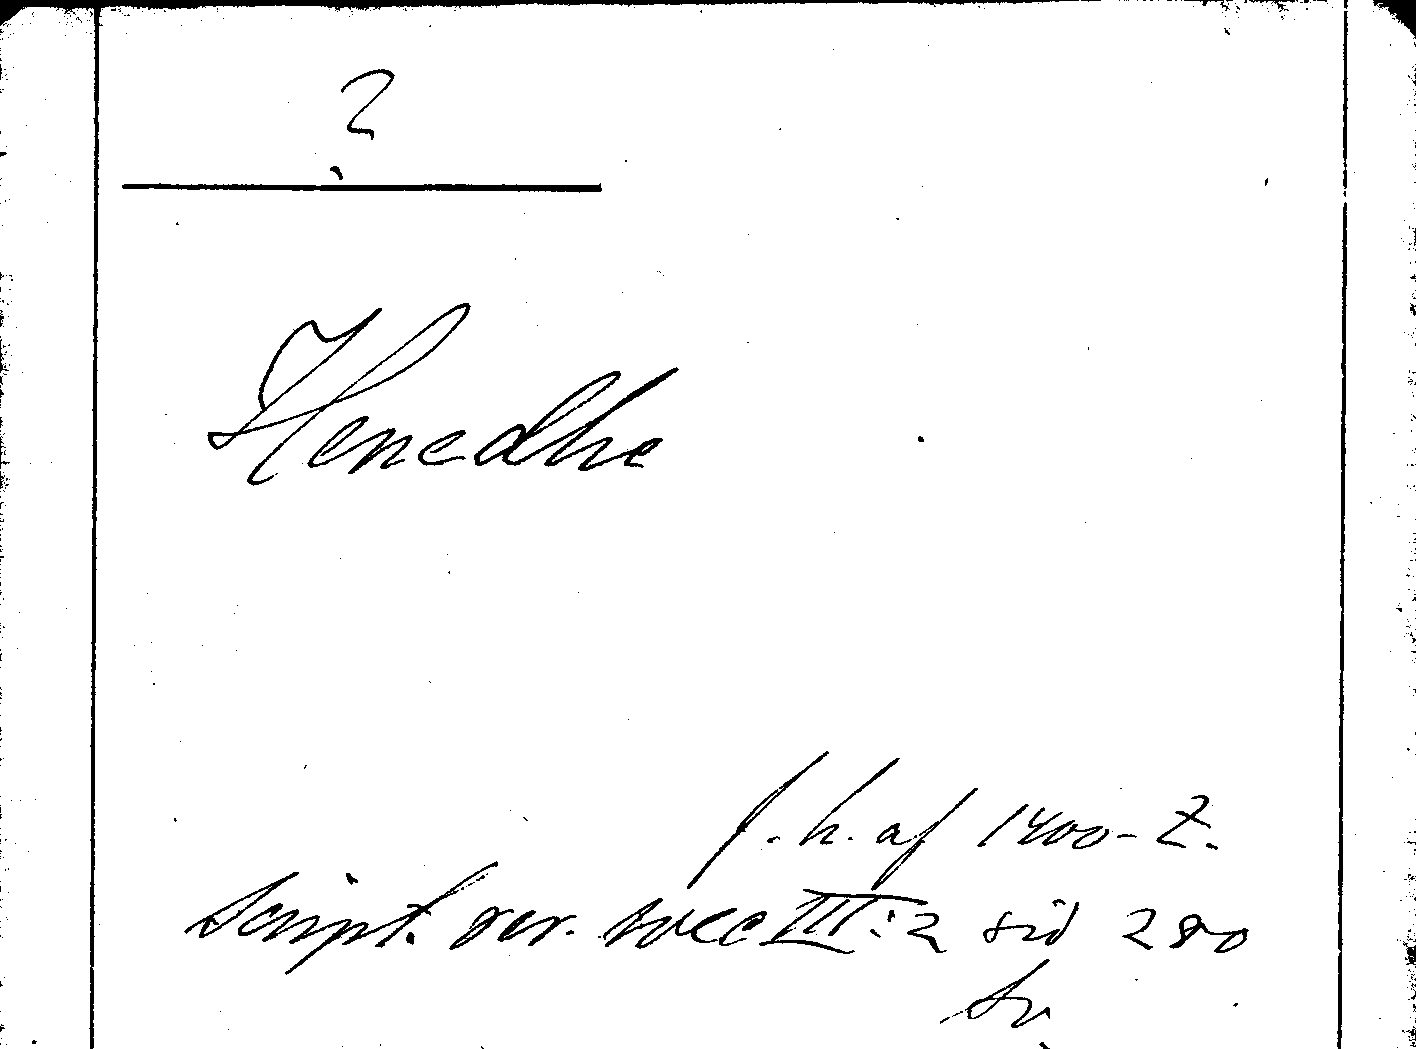 ?
Henedhe
f. h. af 1400-t.
Script. rer. svec III:2 sid 280
Sv